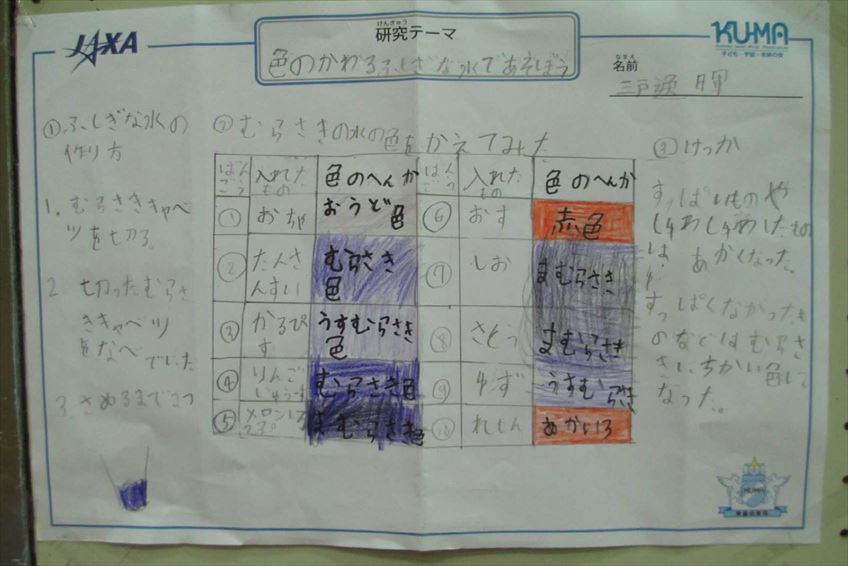 JAXA
けんきゅう
研究テーマ
KU-MA
子ども・宇宙・未来の会
色のかわるふしぎな水であそぼう
なまえ
名前
①ふしぎな水の
作り方
1. むらさきキャベ
ツを切る。
2 切ったむらさ
きキャベツ
をなべでにた
3 さめるまでまつ
②むらさきの水の色をかえてみた
ばんごう 入れたもの 色のへんか
① おちゃ おうど色
② たんさんすい むらさき色
③ かるぴす うすむらさき色
④ りんごじゅうす むらさき色
⑤ メロン むらさき色
ばんごう 入れたもの 色のへんか
⑥ おす 赤色
⑦ しお まむらさき
⑧ さとう まむらさき
⑨ ゆず うすむらさき
⑩ れもん あかいろ
③けっか
すっぱいものや
しゅわしゅわしたもの
は、あかくなった。
すっぱくなかったも
のなどはむらさ
きにちかい色に
なった。
KU-MA